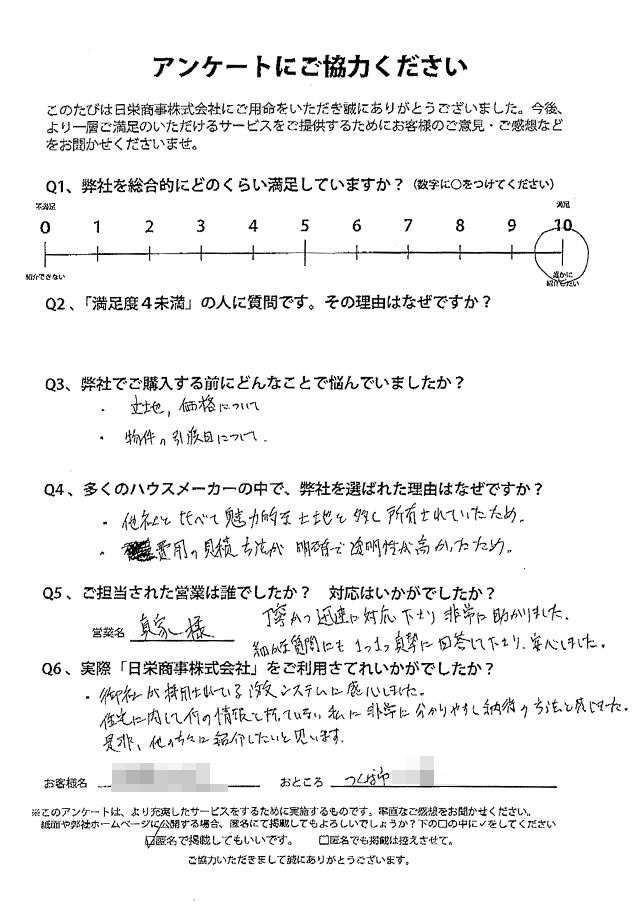 アンケートにご協力ください
このたびは日栄商事株式会社にご用命をいただき誠にありがとうございました。今後、
より一層ご満足のいただけるサービスをご提供するためにお客様のご意見・ご感想など
をお聞かせくださいませ。
Q1、弊社を総合的にどのくらい満足していますか？（数字に○をつけてください）
不満足 満足
0 1 2 3 4 5 6 7 8 9 10
紹介できない 誰かに
紹介したい
Q2、「満足度４未満」の人に質問です。その理由はなぜですか？
Q3、弊社でご購入する前にどんなことで悩んでいましたか？
・ 土地，価格について
・ 物件の引渡日について．
Q4、多くのハウスメーカーの中で、弊社を選ばれた理由はなぜですか？
・他社と比べて魅力的な土地を多く所有されていたため。
・ 費用の見積方法が明確で透明性が高かったため。
Q5、ご担当された営業は誰でしたか？ 対応はいかがでしたか？
営業名 真家様
丁寧かつ迅速に対応下さり非常に助かりました．
細かな質問にも1つ1つ真摯に回答して下さり、安心しました。
Q6、実際「日栄商事株式会社」をご利用されていかがでしたか？
・御社が採用されている システムに感心しました。
住宅に関して何の情報も持っていない私に非常に分かりやすく納得の方法と感じました。
是非、他の方々に紹介したいと思います．
お客様名 おところ つくば市
※このアンケートは、より充実したサービスをするために実施するものです。率直なご感想をお聞かせください。
紙面や弊社ホームページに公開する場合、匿名にて掲載してもよろしいでしょうか？下の□の中に✓をしてください
☑匿名で掲載してもいいです。 □匿名でも掲載は控えさせて。
ご協力いただきまして誠にありがとうございます。